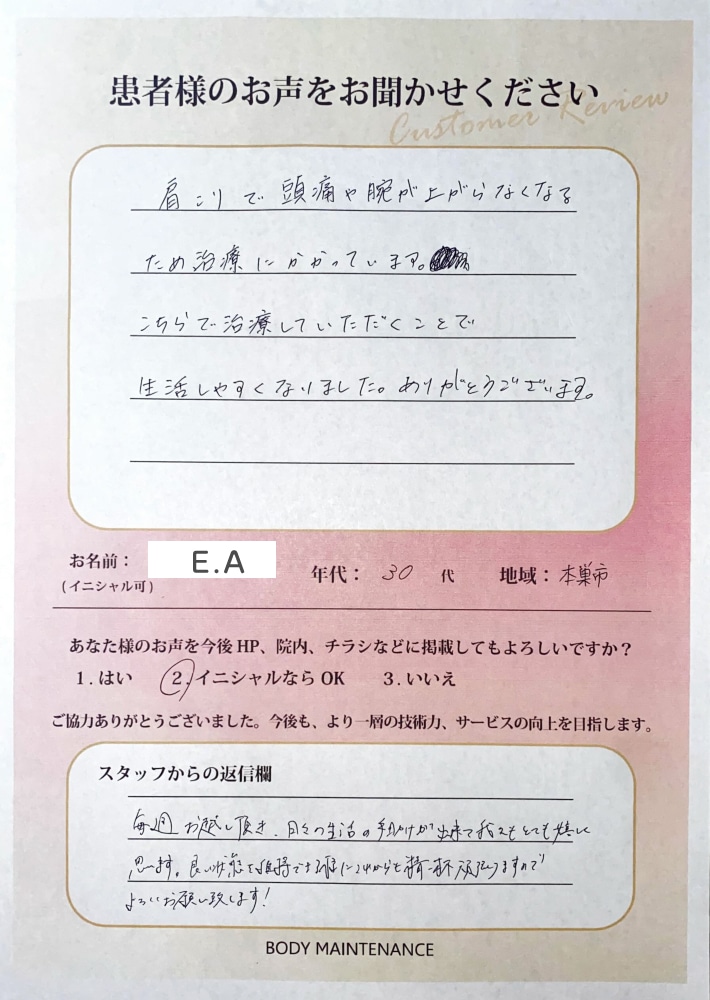 患者様のお声をお聞かせください
Customer Review
肩こりで頭痛や腕が上がらなくなる
ため治療にかかっています。
こちらで治療していただくことで
生活しやすくなりました。ありがとうございます。
お名前： E.A 年代： 30 代 地域： 本巣市
(イニシャル可)
あなた様のお声を今後HP、院内、チラシなどに掲載してもよろしいですか？
1.はい 2.イニシャルならOK 3.いいえ
ご協力ありがとうございました。今後も、より一層の技術力、サービスの向上を目指します。
スタッフからの返信欄
毎週お越し頂き、日々の生活の手助けが出来て私もとても嬉しく
思います。良い状態を維持できる様にこれからも精一杯頑張りますので
よろしくお願い致します！
BODY MAINTENANCE